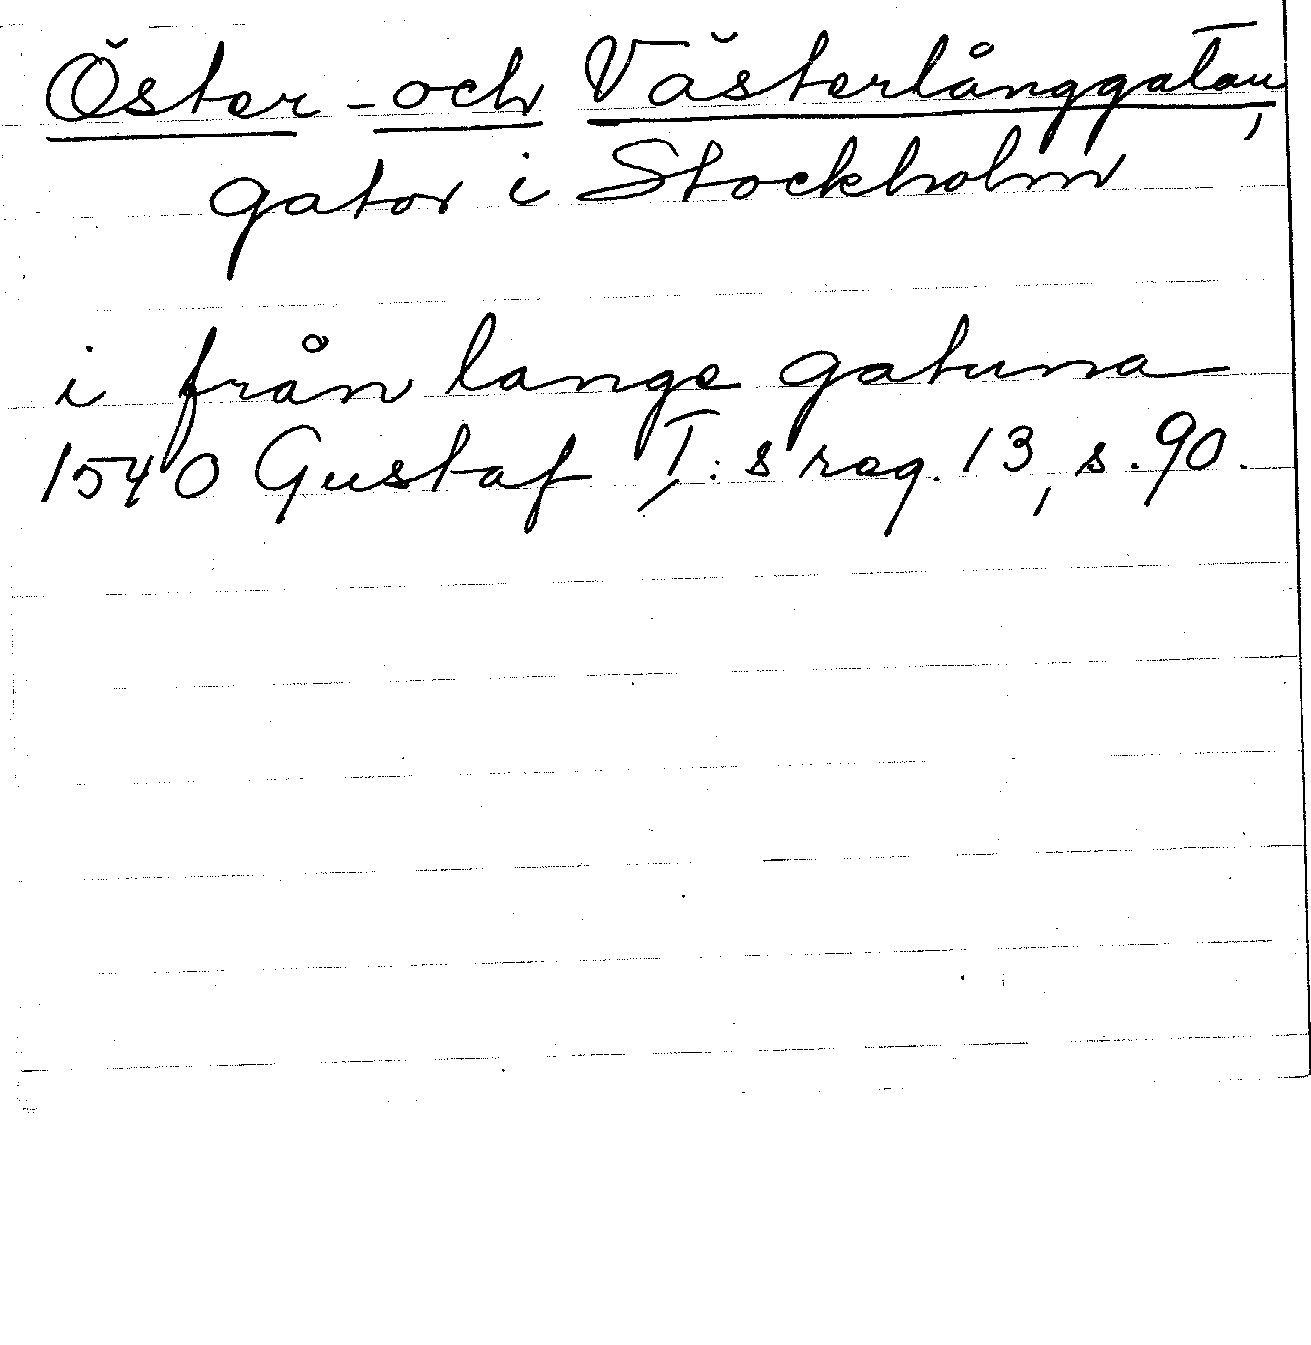 Öster- och Västerlånggatan,
gator i Stockholm
i från lange gatuna
1540 Gustaf I:s reg. 13, s. 90.